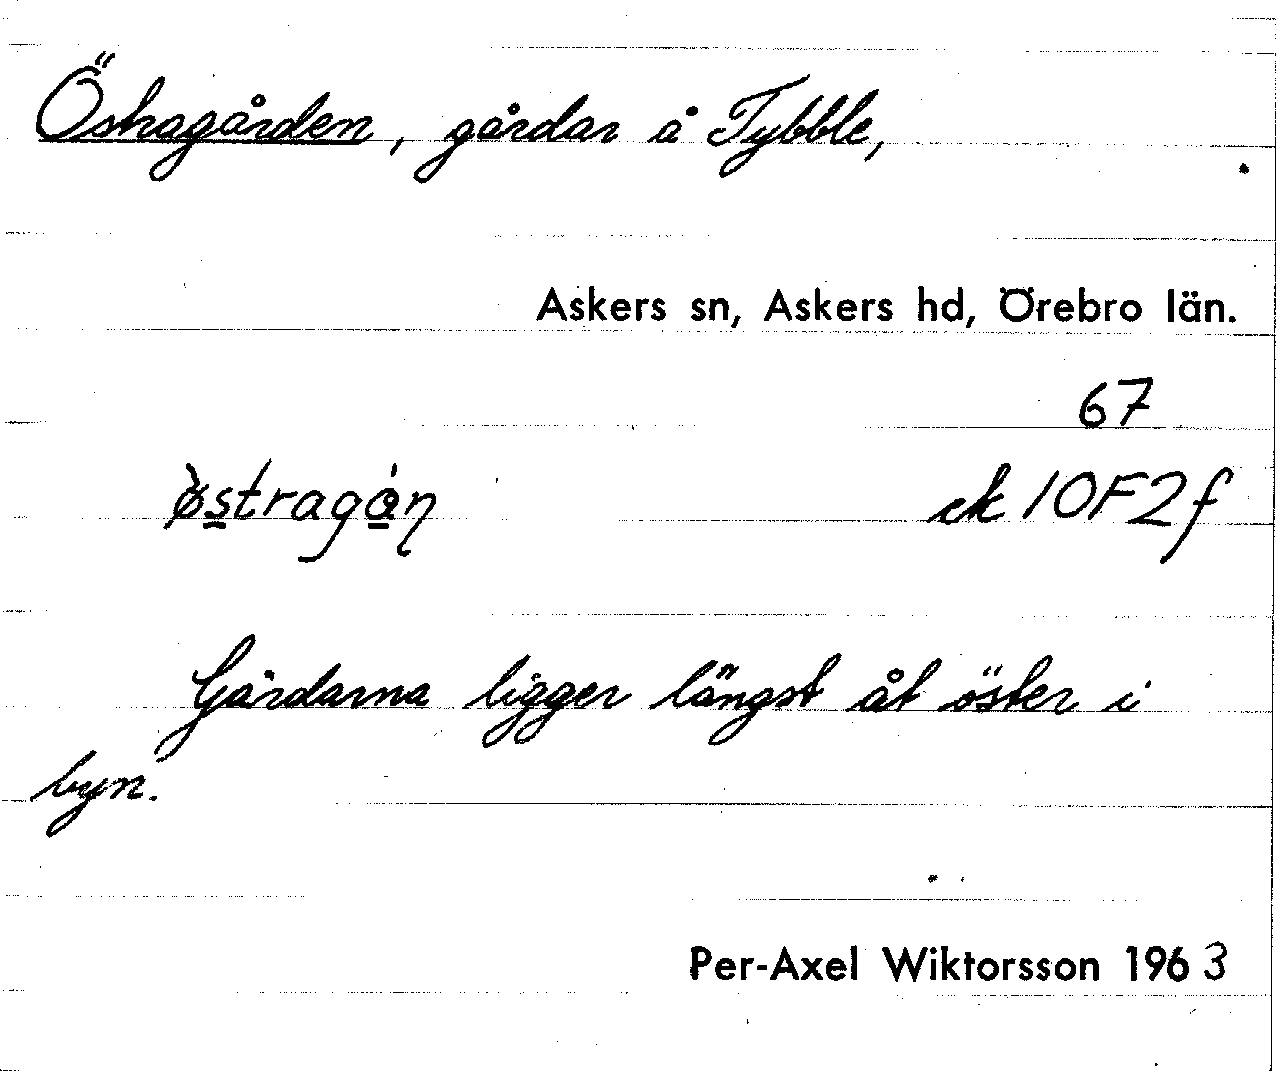 Östragården, gårdar å Tybble,
Askers sn, Askers hd, Örebro län.
67
ek 10F2f
Gårdarna ligger längst åt öster i
byn.
Per-Axel Wiktorsson 1963